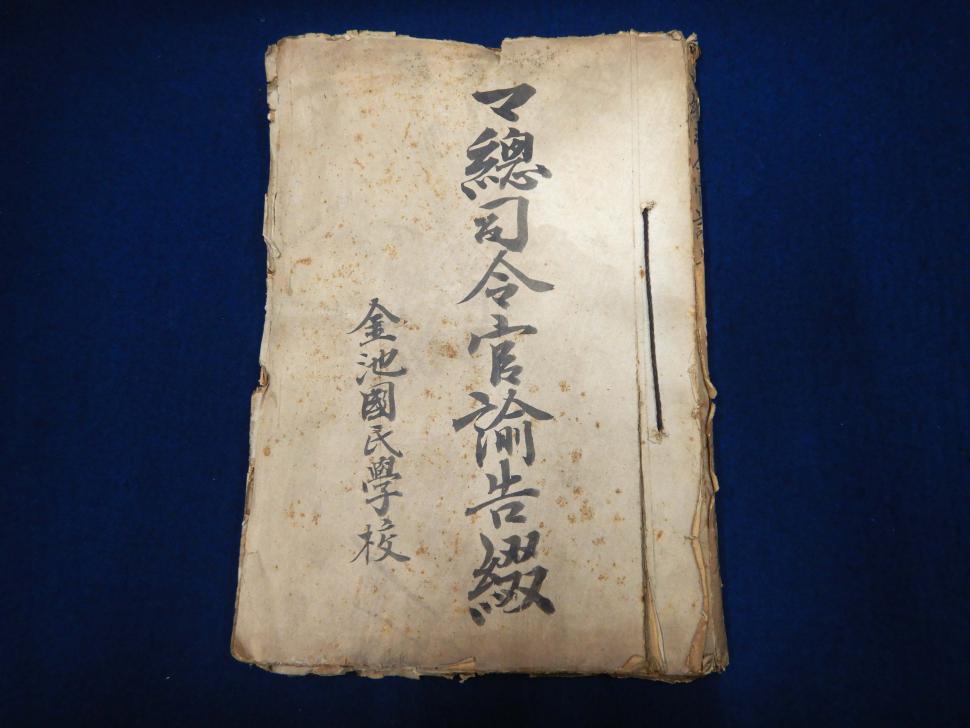 マ總司令官諭告綴
金池國民學校